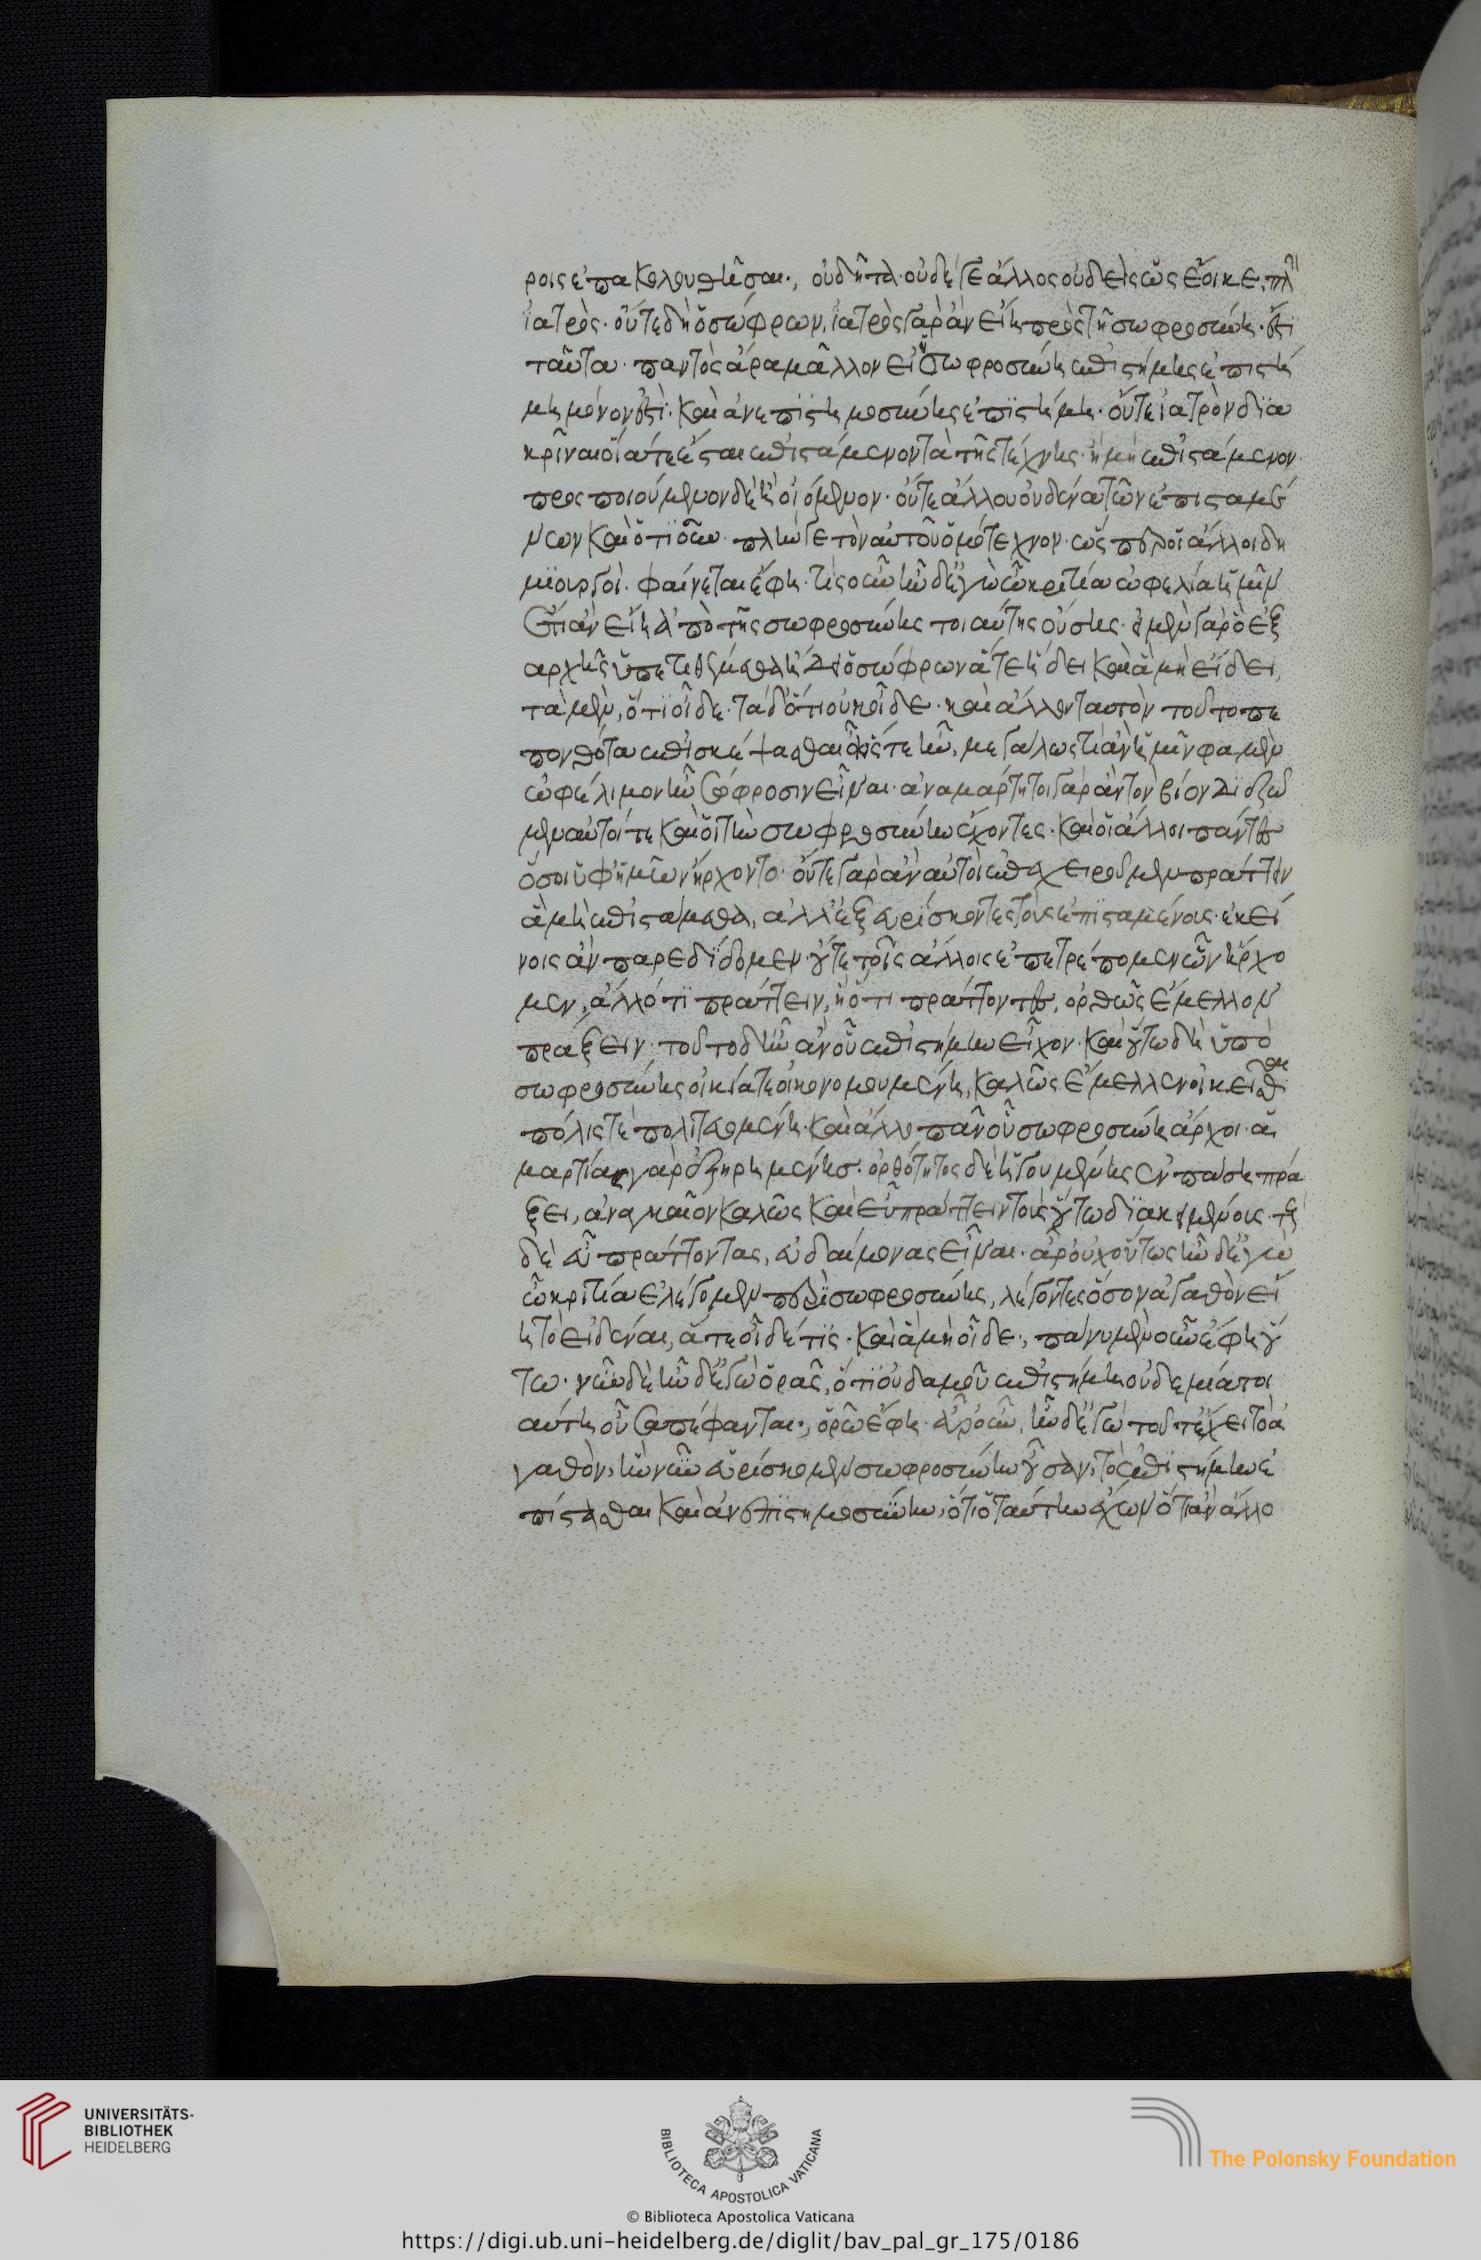 ροις ἐπακολουθῆσαι· οὐ δῆτα· οὐδέ γε ἄλλος οὐδεὶς ὡς ἔοικε, πλὴν
ἰατρὸς· οὔτε δὴ ὁ σώφρων, ἰατρὸς γὰρ ἂν εἴη πρὸς τῇ σωφροσύνῃ· ἔστι
ταῦτα· παντὸς ἄρα μᾶλλον εἰ ἡ σωφροσύνη ἐπιστήμης ἐπιστή
μη μόνον ἐστὶ· καὶ ἀνεπιστημοσύνης ἐπιστήμη· οὔτε ἰατρὸν δια
κρῖναι οἵα τε ἔσται ἐπιστάμενον τὰ τῆς τέχνης· ἢ μὴ ἐπιστάμενον·
προσποιούμενον δὲ ἢ οἰόμενον· οὔτε ἄλλον οὐδένα τῶν ἐπισταμέ
νων καὶ ὁτιοῦν· πλήν γε τὸν αὑτοῦ ὁμότεχνον· ὥσπερ οἱ ἄλλοι δη
μιουργοὶ· φαίνεται ἔφη· τίς οὖν ἦν δ' ἐγὼ ὦ κριτία ὠφελία ἡμῖν
ἔτι ἂν εἴη ἀπὸ τῆς σωφροσύνης τοιαύτης οὔσης· εἰ μὲν γὰρ ὃ ἐξ
ἀρχῆς ὑπετιθέμεθα ᾔδει ὁ σώφρων ἅ τε ᾔδει καὶ ἃ μὴ εἴδει,
τὰ μὲν, ὅτι οἶδε· τὰ δ' ὅτι οὐκ οἶδε· καὶ ἄλλον ταυτὸν τοῦτο πε
πονθότα ἐπισκέψασθαι οἷός τε ἦν, μεγαλωστὶ ἂν ἡμῖν φαμὲν
ὠφέλιμον ἦν σώφροσιν εἶναι· ἀναμάρτητοι γὰρ ἂν τὸν βίον διεζῶ
μεν αὐτοί τε καὶ οἱ τὴν σωφροσύνην ἔχοντες· καὶ οἱ ἄλλοι πάντες
ὅσοι ὑφ' ἡμῶν ἤρχοντο· οὔτε γὰρ ἂν αὐτοὶ ἐπεχειροῦμεν πράττειν
ἃ μὴ ἐπιστάμεθα, ἀλλ' ἐξευρίσκοντες τοὺς ἐπισταμένους· ἐκεί
νοις ἂν παρεδίδομεν· οὔτε τοῖς ἄλλοις ἐπετρέπομεν ὧν ἤρχο
μεν, ἄλλό τι πράττειν, ἢ ὅ τι πράττοντες, ὀρθῶς ἔμελλον
πράξειν· τοῦτο δ' ἦν ἂν οὗ ἐπιστήμην εἶχον· καὶ οὕτω δὴ ὑπὸ
σωφροσύνης οἰκία τε οἰκονομουμένη, καλῶς ἔμελλεν οἰκεῖσθαι
πόλις τε πολιτευομένη· καὶ ἄλλο πᾶν οὗ σωφροσύνη ἄρχοι· ἁ
μαρτίας γὰρ ἐξῃρημένης· ὀρθότητος δὲ ἡγουμένης ἐν πάσῃ πρά
ξει, ἀναγκαῖον καλῶς καὶ εὖ πράττειν τοὺς οὕτω διακειμένους· τοὺς
δὲ εὖ πράττοντας, εὐδαίμονας εἶναι· ἆρ' οὐχ οὕτως ἦν δ' ἐγὼ
ὦ κριτία ἐλέγομεν περὶ σωφροσύνης, λέγοντες ὅσον ἀγαθὸν εἴ
η τὸ εἰδέναι, ἅ τε οἶδέ τις· καὶ ἃ μὴ οἶδε, πάνυ μὲν οὖν ἔφη οὕ
τω· νῦν δὲ ἦν δ' ἐγὼ ὁρᾷς, ὅτι οὐδαμοῦ ἐπιστήμη οὐδεμία τοι
αύτη οὖσα πέφανται· ὁρῶ ἔφη· ἆρ' οὖν, ἦν δ' ἐγώ τοῦτ' ἔχει τὸ ἀ
γαθὸν, ἣν νῦν εὑρίσκομεν σωφροσύνην οὖσαν, τὸ ἐπιστήμην ἐ
πίστασθαι καὶ ἀνεπιστημοσύνην, ὅτι ὁ ταύτην ἔχων ὅτι ἂν ἄλλο
UNIVERSITÄTS-
BIBLIOTHEK
HEIDELBERG
BIBLIOTECA APOSTOLICA VATICANA
The Polonsky Foundation
© Biblioteca Apostolica Vaticana
https://digi.ub.uni-heidelberg.de/diglit/bav_pal_gr_175/0186